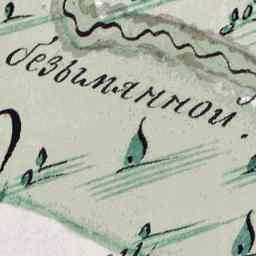 безымянной.